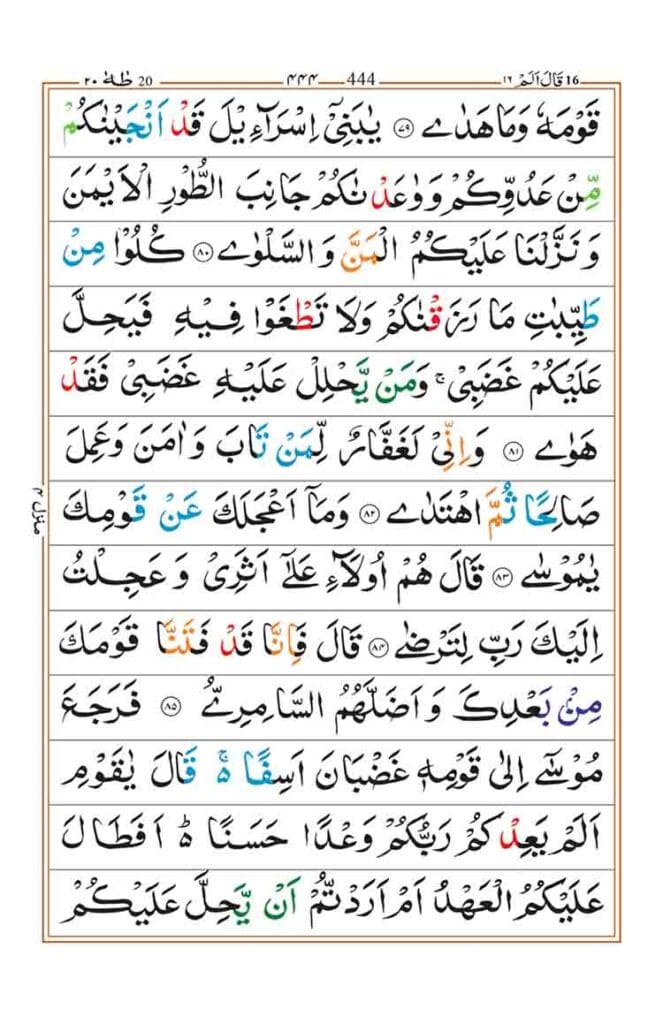 قَالَ اَلَمْ ١٦ 16 444 ٤٤٤ 20 طٰهٰ ٢٠
قَوْمَهٗ وَمَا هَدٰى ﴿٧٩﴾ يٰبَنِىْۤ اِسْرَآءِيْلَ قَدْ اَنْجَيْنٰكُمْ
مِّنْ عَدُوِّكُمْ وَوٰعَدْنٰكُمْ جَانِبَ الطُّوْرِ الْاَيْمَنَ
وَنَزَّلْنَا عَلَيْكُمُ الْمَنَّ وَالسَّلْوٰى ﴿٨٠﴾ كُلُوْا مِنْ
طَيِّبٰتِ مَا رَزَقْنٰكُمْ وَلَا تَطْغَوْا فِيْهِ فَيَحِلَّ
عَلَيْكُمْ غَضَبِىْ ۚ وَمَنْ يَّحْلِلْ عَلَيْهِ غَضَبِىْ فَقَدْ
هَوٰى ﴿٨١﴾ وَاِنِّىْ لَغَفَّارٌ لِّمَنْ تَابَ وَاٰمَنَ وَعَمِلَ
صَالِحًا ثُمَّ اهْتَدٰى ﴿٨٢﴾ وَمَاۤ اَعْجَلَكَ عَنْ قَوْمِكَ
يٰمُوْسٰى ﴿٨٣﴾ قَالَ هُمْ اُولَآءِ عَلٰٓى اَثَرِىْ وَعَجِلْتُ
اِلَيْكَ رَبِّ لِتَرْضٰى ﴿٨٤﴾ قَالَ فَاِنَّا قَدْ فَتَنَّا قَوْمَكَ
مِنْۢ بَعْدِكَ وَاَضَلَّهُمُ السَّامِرِىُّ ﴿٨٥﴾ فَرَجَعَ
مُوْسٰٓى اِلٰى قَوْمِهٖ غَضْبَانَ اَسِفًا ۚ۬ قَالَ يٰقَوْمِ
اَلَمْ يَعِدْكُمْ رَبُّكُمْ وَعْدًا حَسَنًا ؕ۬ اَفَطَالَ
عَلَيْكُمُ الْعَهْدُ اَمْ اَرَدْتُّمْ اَنْ يَّحِلَّ عَلَيْكُمْ
منزل ٤